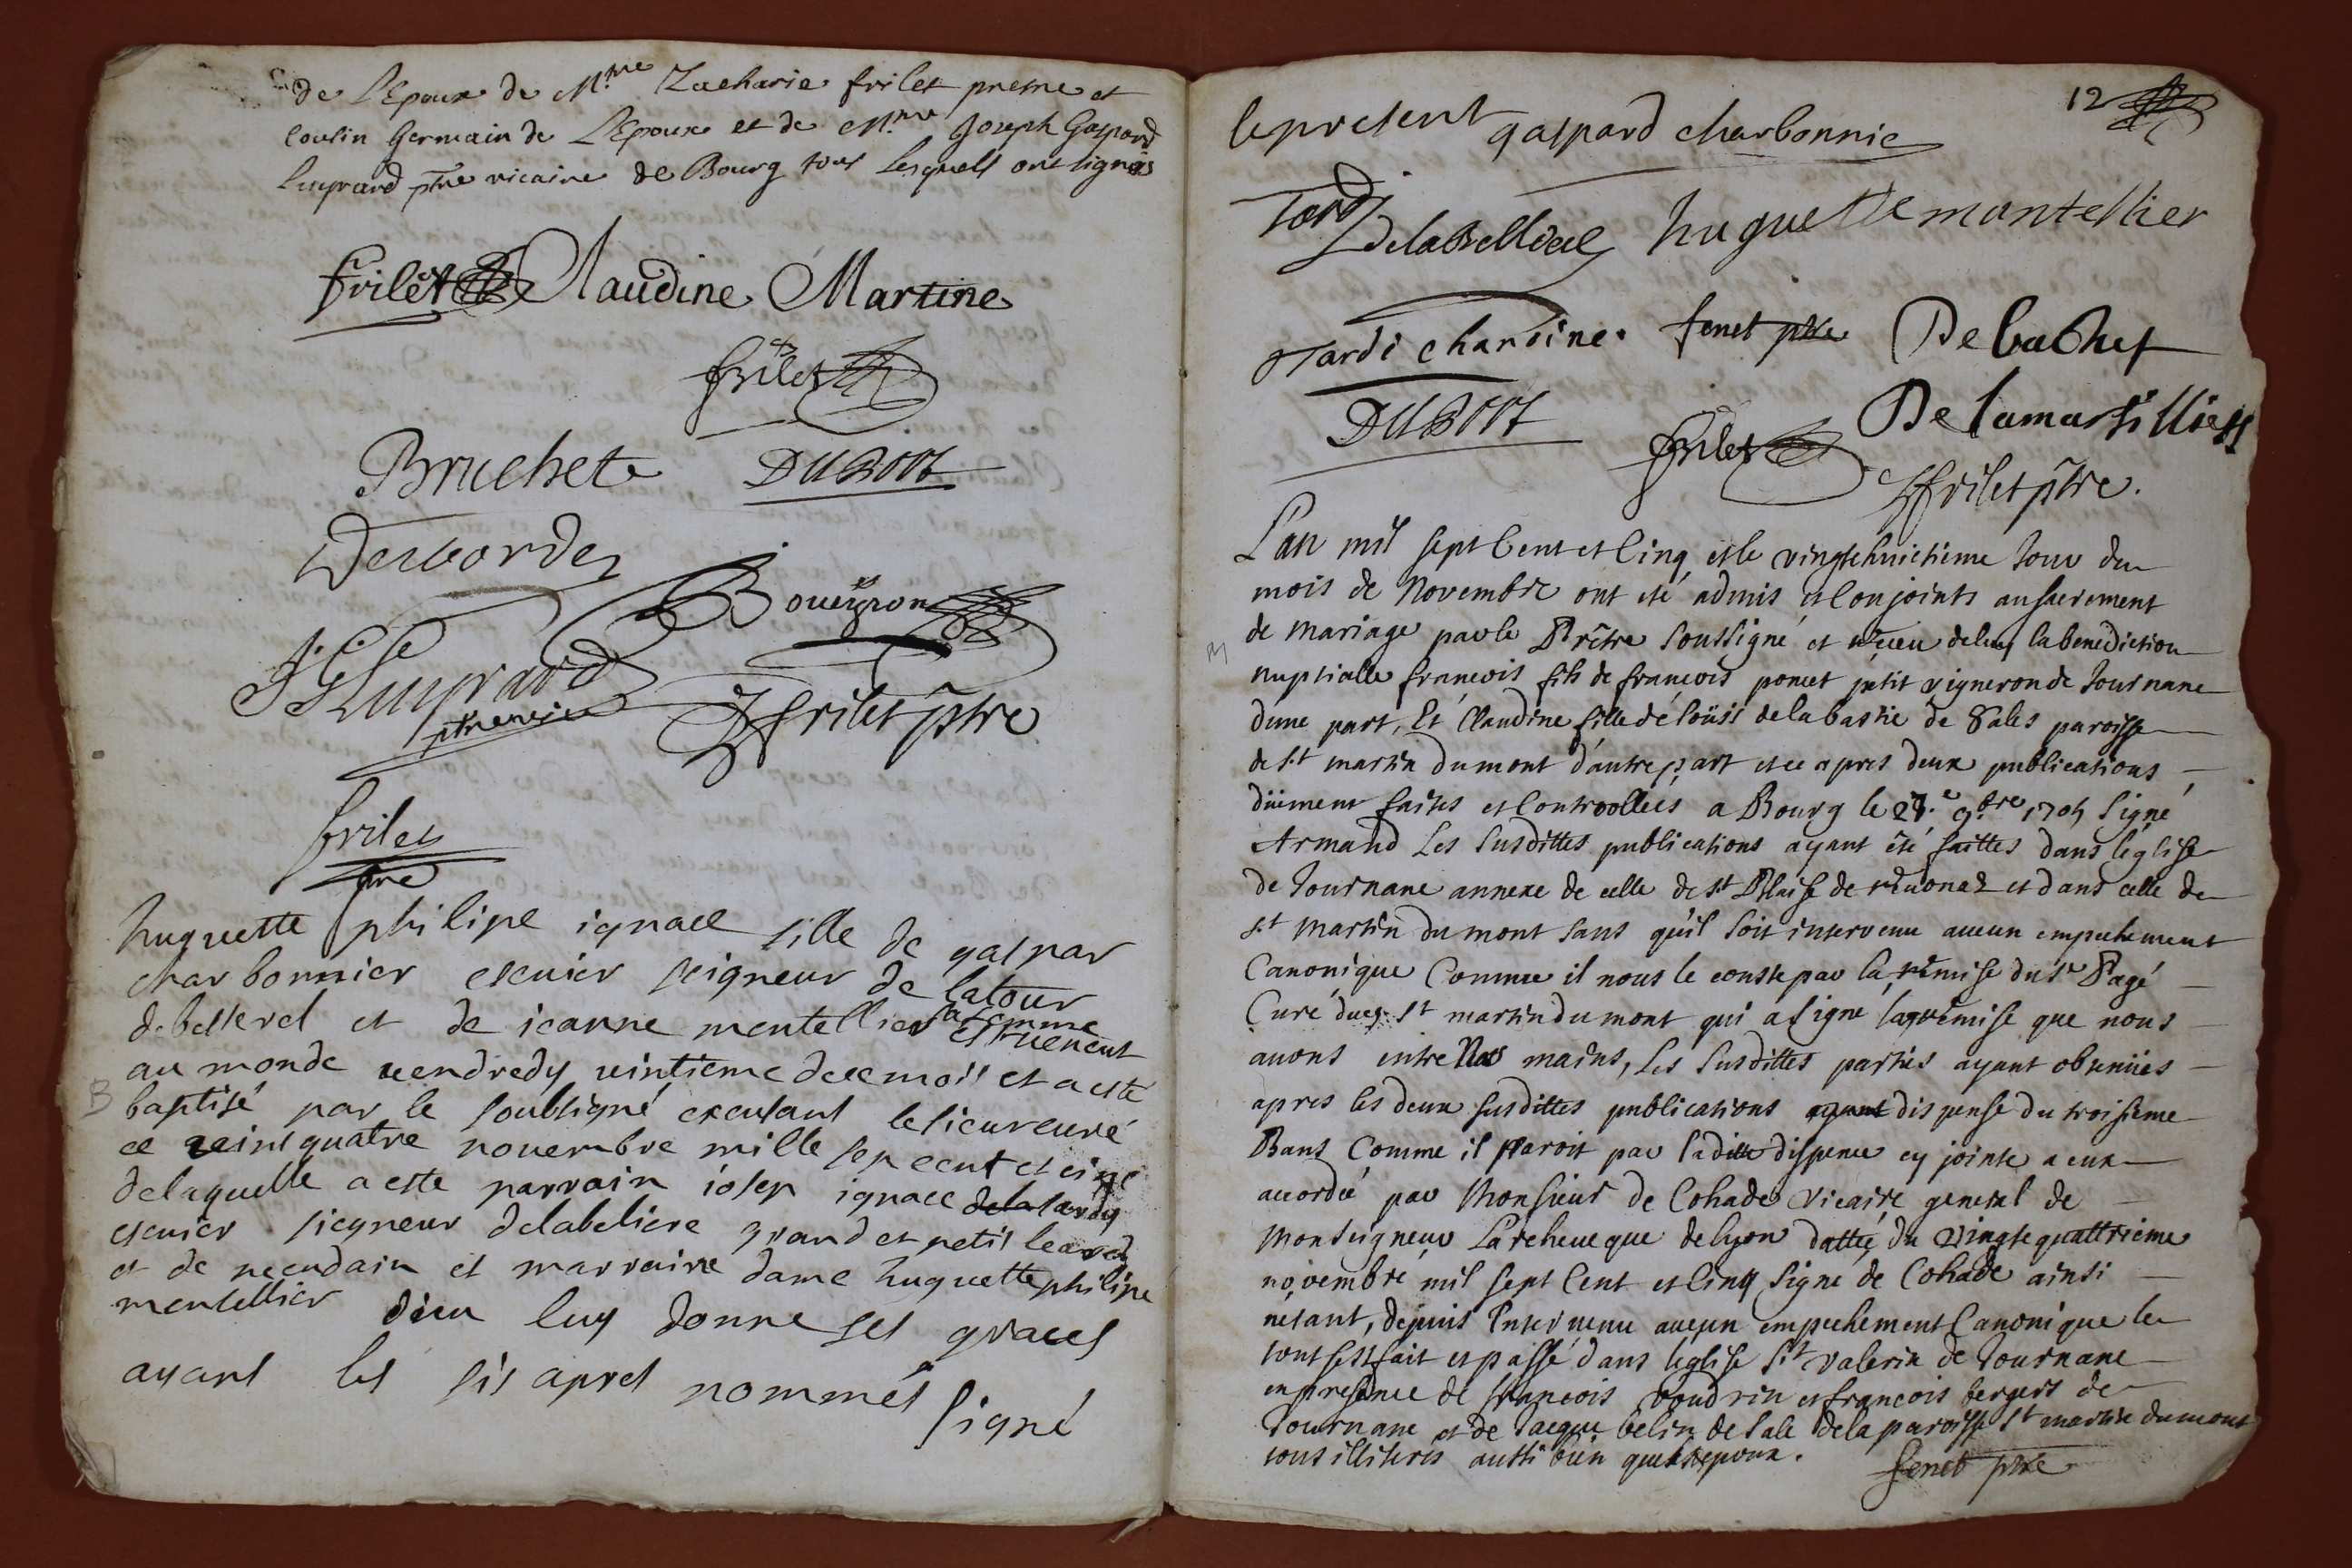 de L'Epoux de M.re Zacharie frilet prestre et
Cousin Germain de L'Epoux et de M.re Joseph Gaspard
Luyrard ptre vicaire de Bourg tous Lesquels ont signés
frilet Claudine Martine
frilet
Bruchet DUBOST
Desbordes
Boueyron
JG Luyrard
ptre vic
Zfrilet ptre
frilet
ptre
huguette philipe ignace fille de gaspar
charbonnier escuier seigneur de latour
debesserel et de jeanne montellier sa femme est venent
au monde vendredy vintieme de ce mois et a esté
B
baptisé par le soubsigné excusant le sieur curé
ce vint quatre novembre mille sept cent et cinq
delaquelle a esté parrain iosep ignace delatardy
escuier sieigneur delabeliere grand et petit
et de et marraine dame huguette philipe
montellier dieu luy donne ses graces
ayant les sis apres nommés signé
12
le present gaspard charbonnie
Tardy
Delabelliere huguette montellier
Tardi chanoine. fenet ptre De bachet
DUBOST
frilet
Delamartilliere
Zfrilet ptre.
L'an mil sept Cent et Cinq et le vingtehuictieme Jour du
mois de Novembre ont eté admis et Conjoints au sacrement
M
de mariage par le Prêtre Soussigné et réceu de luy la benediction
nuptialle francois fils de francois poncet petit vigneron de Journane
d'une part, Et Claudine fille dé Loüis delabastie de Sales paroisse
de s.t martin dumont d'autre part et ce apres deux publications
düement faites et Controollées a Bourg le 27.e 9.bre 1705 signé
Armand Les Susdittes publications ayant été faittes dans l'église
de Journane annexe de celle de s.t Blaise de révonas et dans celle de
s.t Martin dumont sans qu'il soit intervenu aucun empechement
Canonique Comme il nous le conste par la rémise du sr Pagé
Curé dud. st martin dumont qui a signé la rémise que nous
avons entre Nos mains, Les Susdittes parties ayant obtenües
apres les deux susdittes publications ayant dispense du troisieme
Bans Comme il paroit par ladite dispence cy jointe a eux
accordée par Monsieur de Cohade vicaire general de
Monseigneur L'archeveque de lyon dattée du Vingtequattrieme
novembre mil sept Cent et Cinq signé de Cohade ainsi
nétant, dépuis Intervenu aucun empechement Canonique le
tout s'est fait et passé dans l'église st valerin de Journane
en presence de francois voudrin et francois bergers de
Journane et de Jacque belin de Sale de la paroisse st martin dumont
tous illiterés aussi bien que les epoux. fenet ptre